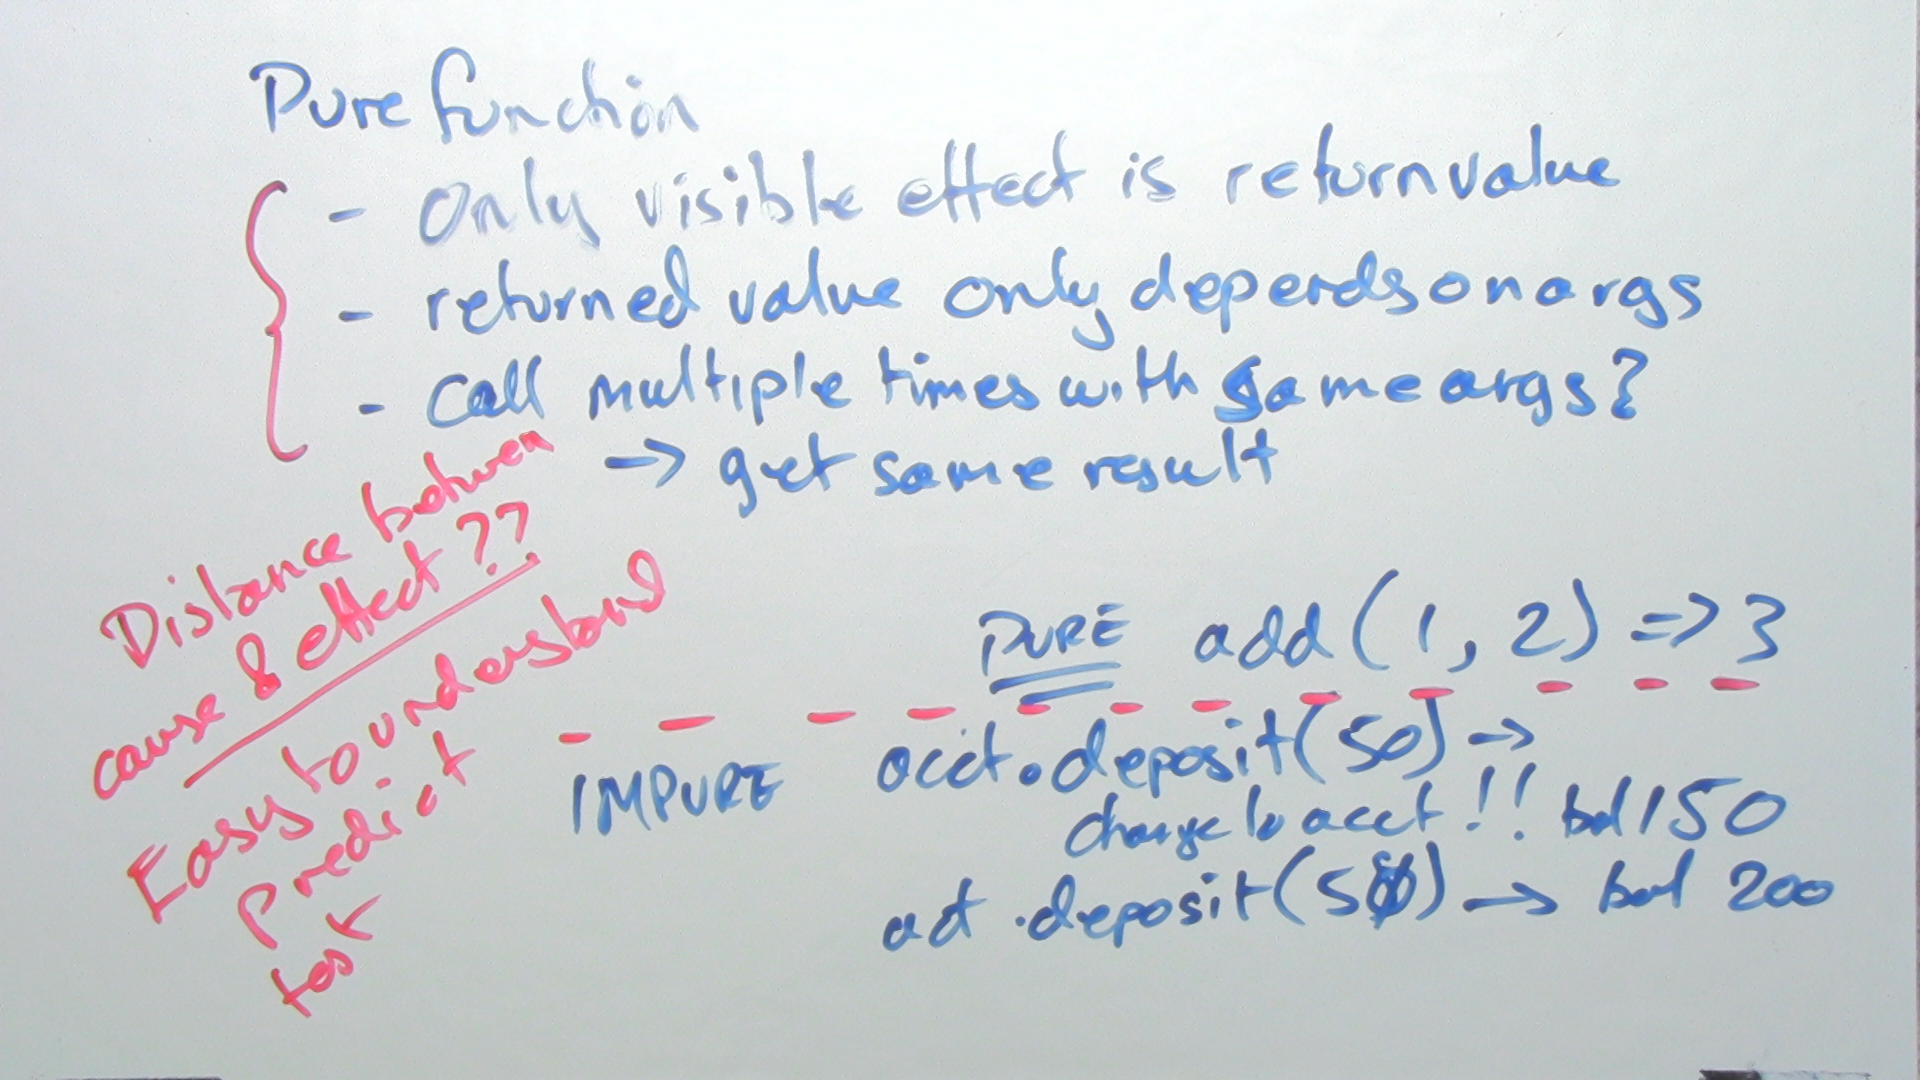 Pure function
- Only visible effect is return value
- returned value only depends on args
- call multiple times with same args?
→ get same result
Distance between
cause & effect??
Easy to understand
predict
test
PURE add(1, 2) => 3
IMPURE acct.deposit(50) →
change to acct!! bal 150
act.deposit(50) → bal 200